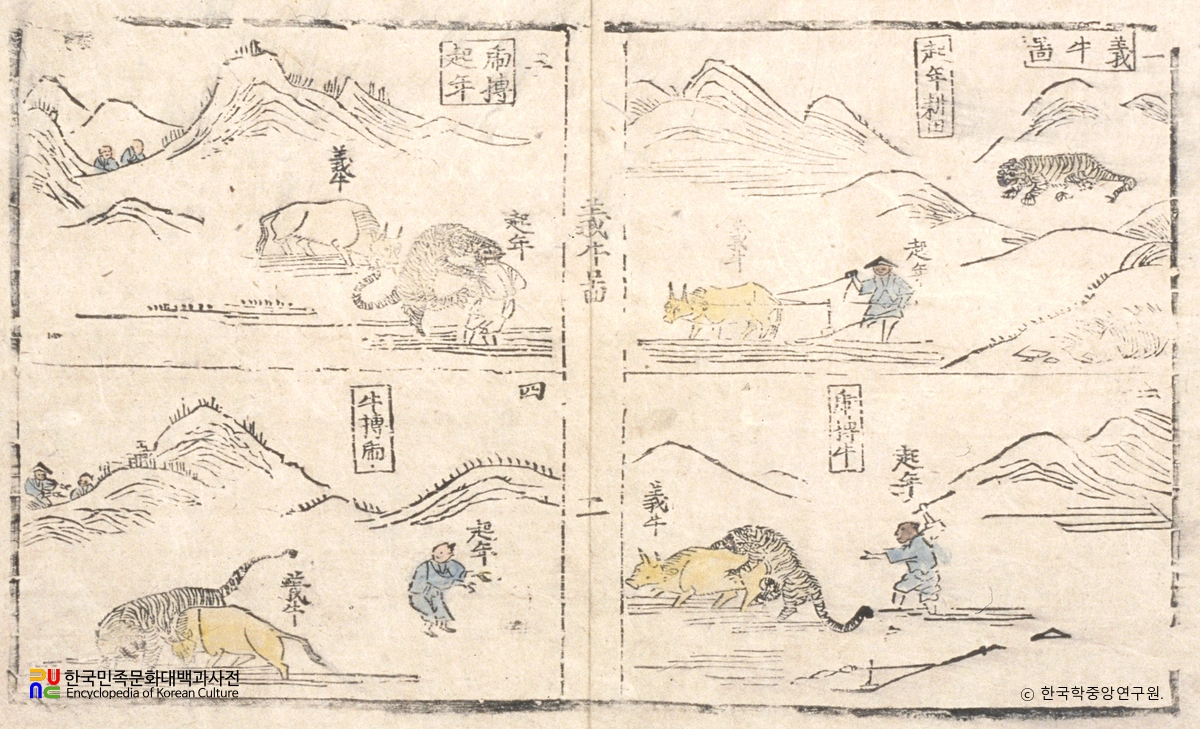 一
義牛啚
起年耕田
起年
義牛
二
虎搏牛
起年
義牛
義牛啚
二
三
虎搏
起年
義牛
起年
四
牛搏虎
起年
義牛
한국민족문화대백과사전
Encyclopedia of Korean Culture
ⓒ 한국학중앙연구원.